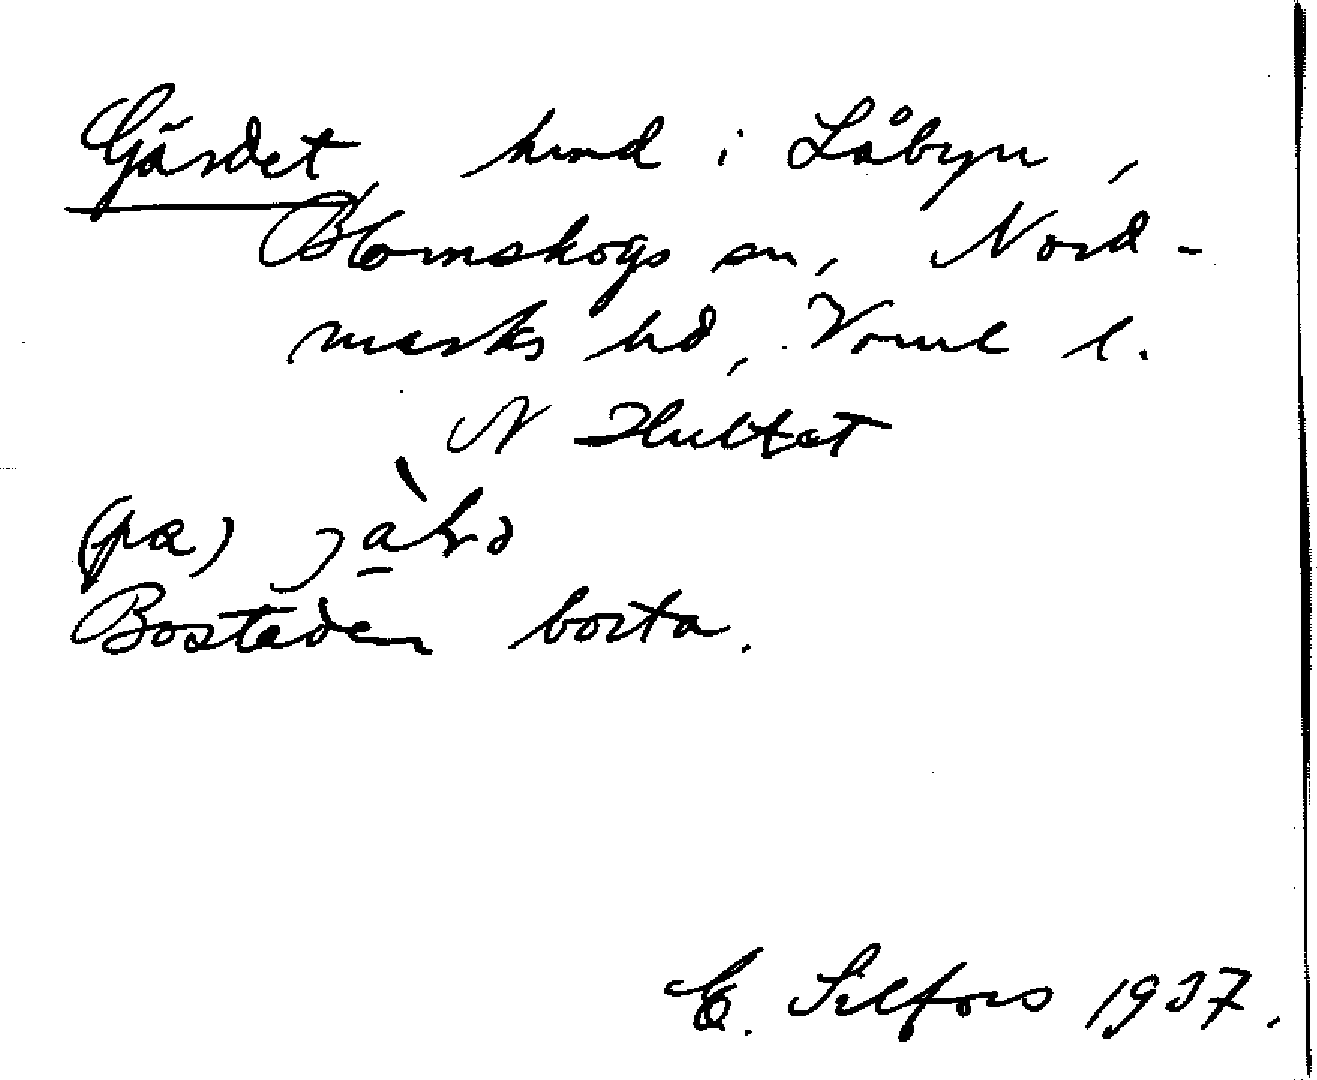 Gärdet, hmd i Låbyn,
Blomskogs sn, Nord-
marks hd, Vrml l.
N Hultet
(pa)
Bostaden borta.
E. Silfors 1937.